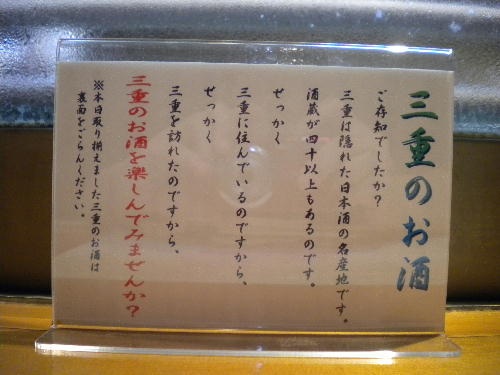 三重のお酒
ご存知でしたか？
三重は隠れた日本酒の名産地です。
酒蔵が四十以上もあるのです。
せっかく
三重に住んでいるのですから、
せっかく
三重を訪れたのですから、
三重のお酒を楽しんでみませんか？
※本日取り揃えました三重のお酒は
裏面をごらんください。